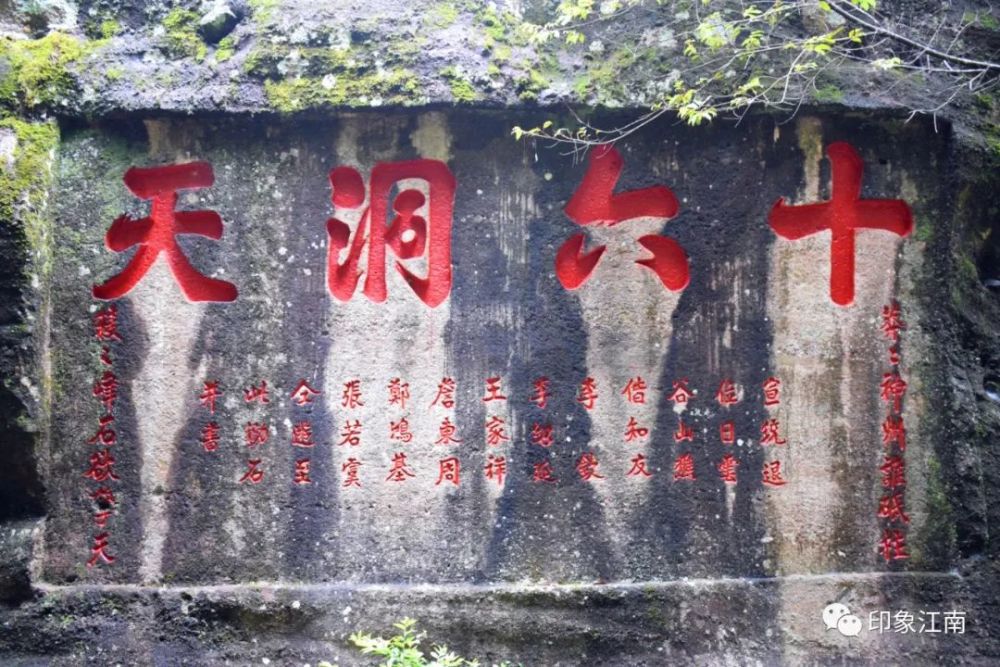 十六洞天
莽々神州誰砥柱
宣筑退
日
谷山樵
偕知友
李
李紹延
王家祥
詹東周
鄭鴻基
張若
仝遊至
此勒石
并書
々峰石欲擎天
印象江南